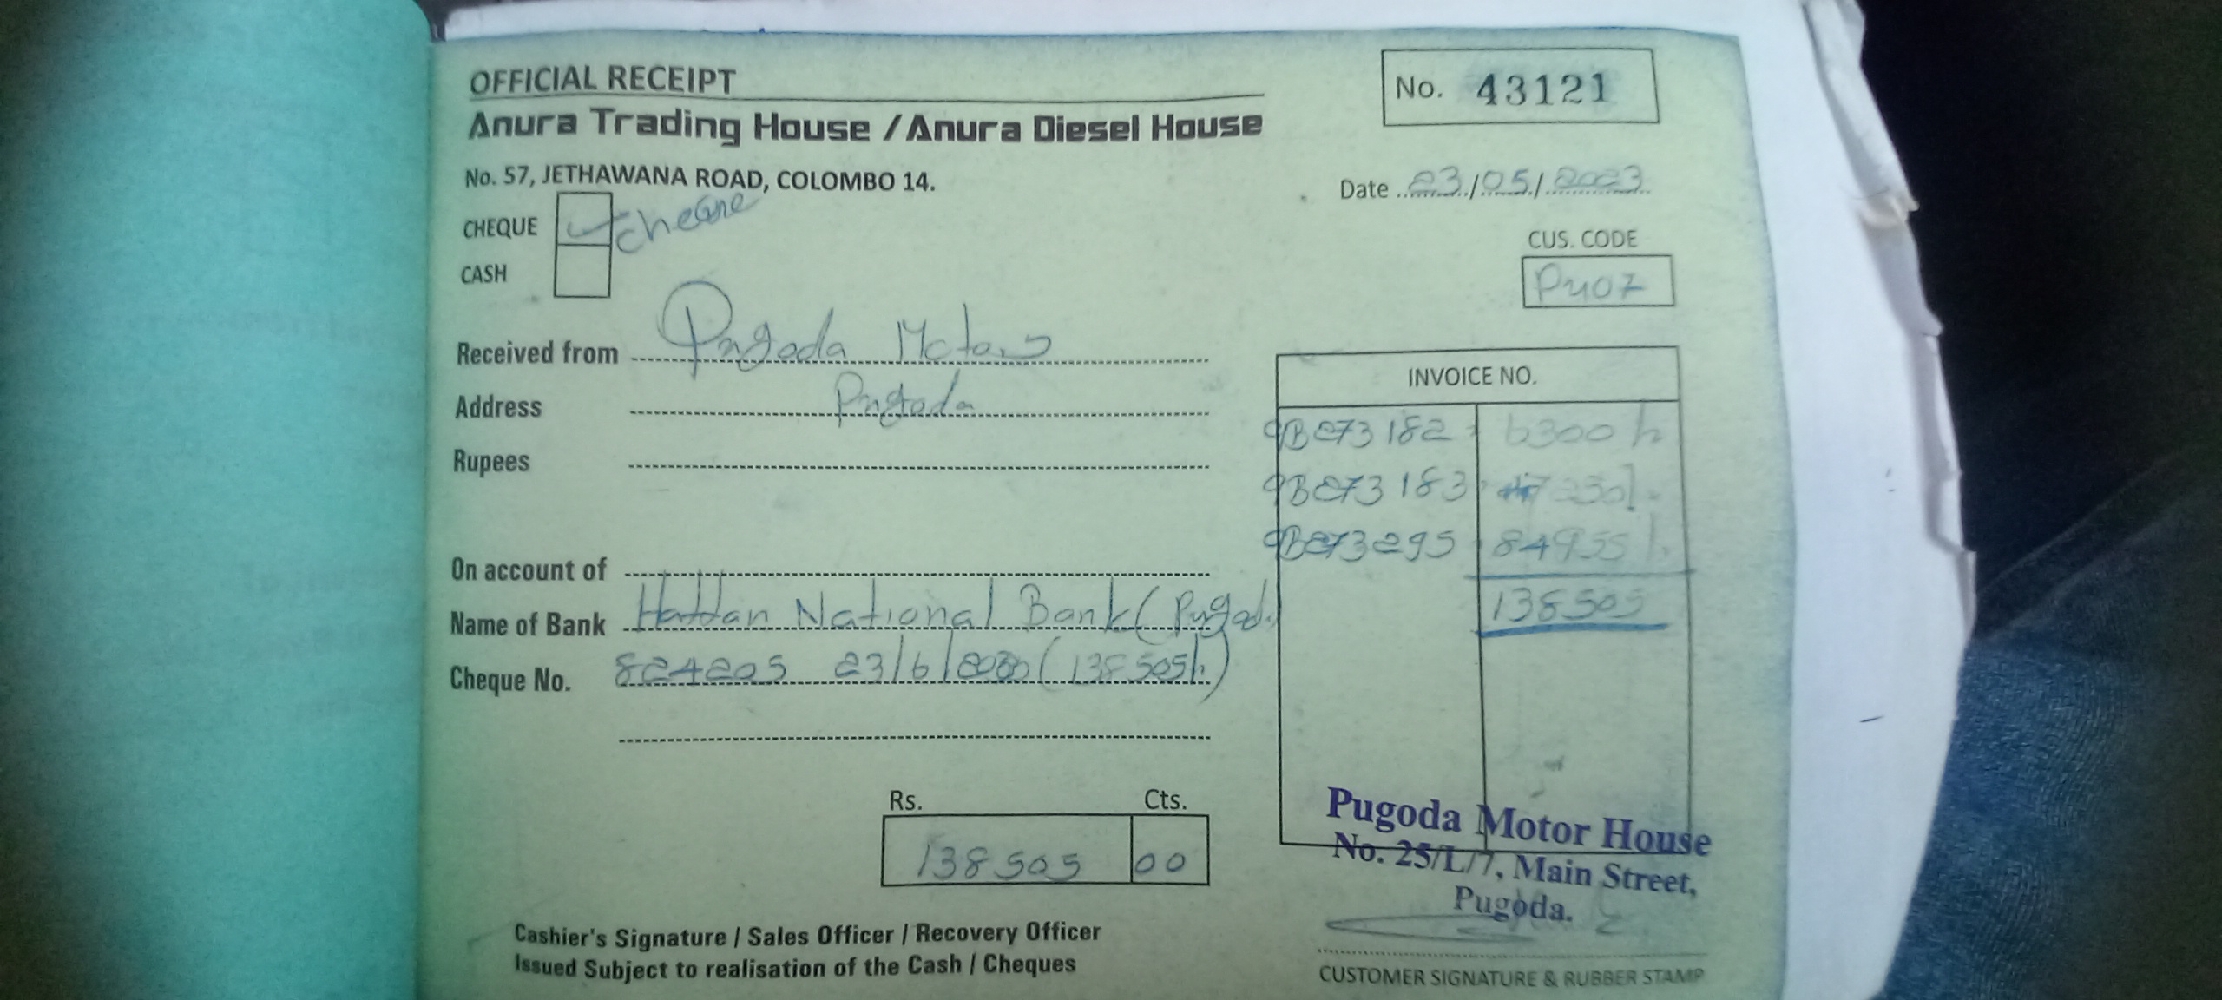 OFFICIAL RECEIPT
No. 43121
Anura Trading House / Anura Diesel House
No. 57, JETHAWANA ROAD, COLOMBO 14.
Date 23/05/2023
CHEQUE Cheque
CASH
CUS. CODE
PU07
Received from Pugoda Motors
Address Pugoda
Rupees
INVOICE NO.
9B273182 6300/-
9B273183 47250/-
9B273295 84955/-
138505
On account of
Name of Bank Hattan National Bank (Pugod.
Cheque No. 824205 23/6/ (138505/-)
Rs. Cts.
138505 00
Pugoda Motor House
No. 25/L/7, Main Street,
Pugoda.
Cashier's Signature / Sales Officer / Recovery Officer
Issued Subject to realisation of the Cash / Cheques
CUSTOMER SIGNATURE & RUBBER STAMP